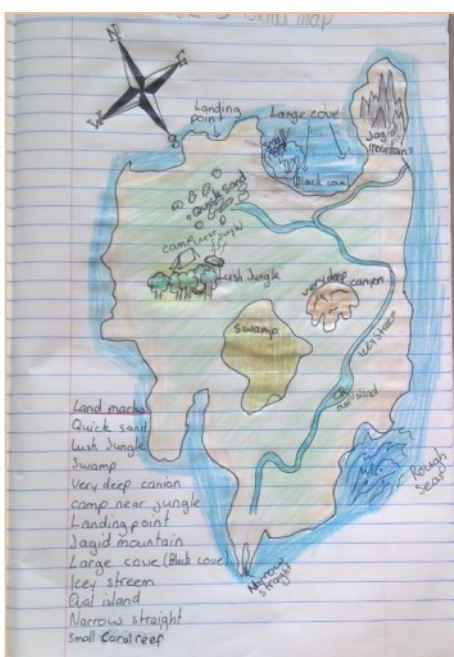 Skills map
N
E
W
S
Landing
point
Large cove
Small
Jagid
mountains
Black cove
Quick sand
camp near jungle
Lush Jungle
very deep canyon
Swamp
Icey streem
island
Rough
Seas
Narrow
straight
Land marks
Quick sand
Lush Jungle
Swamp
Very deep canion
camp near jungle
Landing point
Jagid mountain
Large cove (Black cove)
Icey streem
Oval island
Narrow straight
Small Coral reef